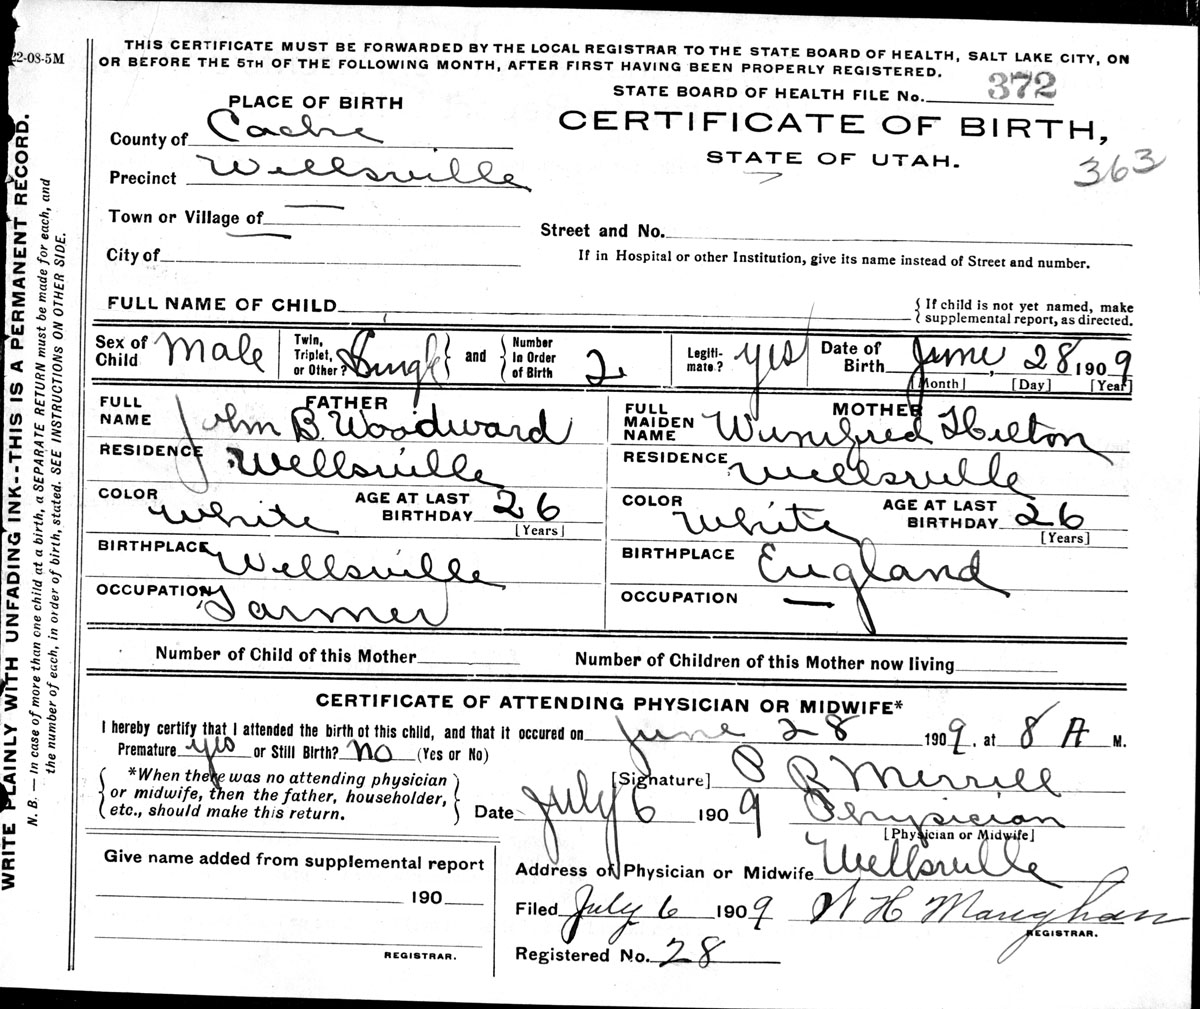 22-08-5M
THIS CERTIFICATE MUST BE FORWARDED BY THE LOCAL REGISTRAR TO THE STATE BOARD OF HEALTH, SALT LAKE CITY, ON
OR BEFORE THE 5TH OF THE FOLLOWING MONTH, AFTER FIRST HAVING BEEN PROPERLY REGISTERED.
STATE BOARD OF HEALTH FILE No. 372
PLACE OF BIRTH
CERTIFICATE OF BIRTH,
STATE OF UTAH.
363
County of Cache
Precinct Wellsville
Town or Village of —
City of —
Street and No.
If in Hospital or other Institution, give its name instead of Street and number.
FULL NAME OF CHILD
{ If child is not yet named, make
supplemental report, as directed.
Sex of Child Male
Twin, Triplet, or Other? Single } and { Number In Order of Birth 2
Legiti-mate? yes
Date of Birth June, 28 1909
[Month] [Day] [Year]
FATHER
FULL NAME John B. Woodward
RESIDENCE Wellsville
COLOR White AGE AT LAST BIRTHDAY 26
[Years]
BIRTHPLACE Wellsville
OCCUPATION Farmer
MOTHER
FULL MAIDEN NAME Winnifred Hilton
RESIDENCE Wellsville
COLOR White AGE AT LAST BIRTHDAY 26
[Years]
BIRTHPLACE England
OCCUPATION —
Number of Child of this Mother
Number of Children of this Mother now living
CERTIFICATE OF ATTENDING PHYSICIAN OR MIDWIFE*
I hereby certify that I attended the birth of this child, and that it occured on June 28 1909, at 8 A M.
Premature yes or Still Birth? No (Yes or No)
{ *When there was no attending physician
or midwife, then the father, householder,
etc., should make this return. }
[Signature] P R Merrill
Date July 6 1909 Physician
[Physician or Midwife]
Address of Physician or Midwife Wellsville
Filed July 6 1909 W H Maughan
REGISTRAR.
Registered No. 28
Give name added from supplemental report
190
REGISTRAR.
WRITE PLAINLY WITH UNFADING INK--THIS IS A PERMANENT RECORD.
N. B. — In case of more than one child at a birth, a SEPARATE RETURN must be made for each, and
the number of each, in order of birth, stated. SEE INSTRUCTIONS ON OTHER SIDE.